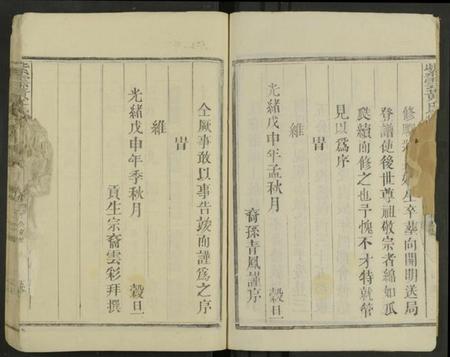 紫雲黃氏
修
生卒葬向開明送局
登譜使後世尊祖敬宗者綿如瓜
瓞續向修之也予愧不才特就管
見以爲序
時
維
光緒戊申年孟秋月
穀旦
裔孫青鳳謹序
仝厥事敢以事告竣向謹爲之序
時
維
光緒戊申年季秋月
穀旦
貢生宗裔雲彩拜撰